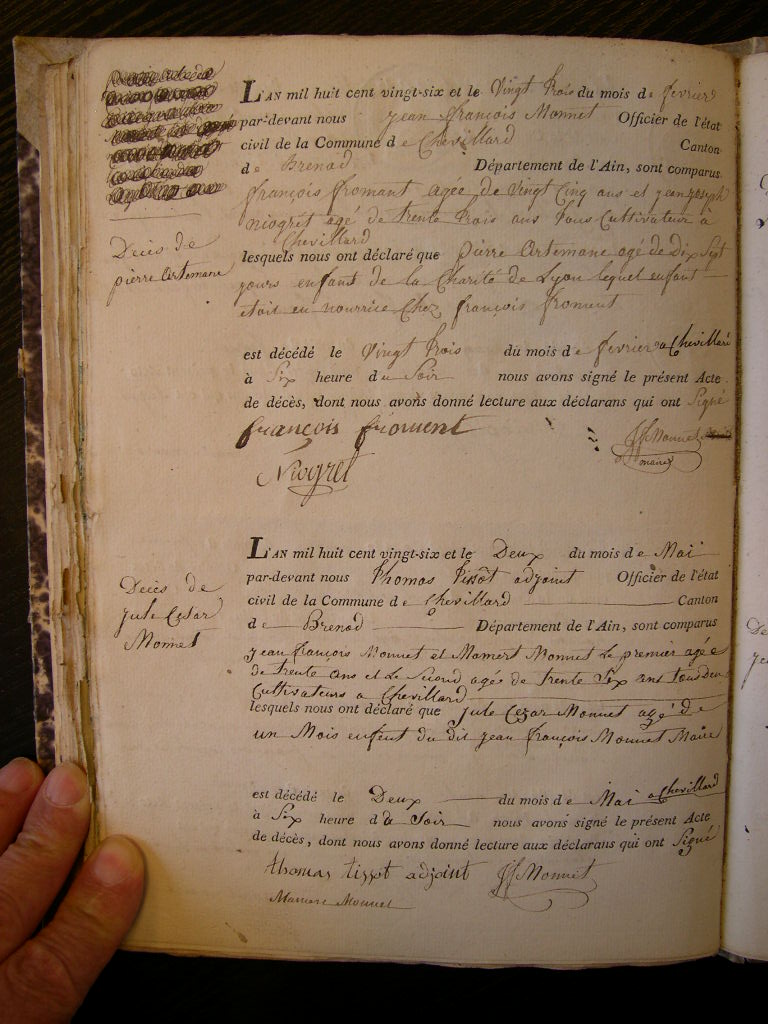 Décès de
pierre Artemane
L'AN mil huit cent vingt-six et le vingt trois du mois de fevrier
par-devant nous jean françois Monnet Officier de l'état
civil de la Commune de Chevillard Canton
de Brenod Département de l'Ain, sont comparus
françois fromant agée de vingt Cinq ans et jean joseph
niogret agé de trente trois ans tous Cultivateur à
Chevillard
lesquels nous ont déclaré que pierre Artemane agé de dix Sept
jours enfant de la Charité de Lyon lequel enfant
etoit en nourrice Chez françois froment
est décédé le vingt trois du mois de fevrier a Chevillard
à Six heure du Soir nous avons signé le présent Acte
de décès, dont nous avons donné lecture aux déclarans qui ont Signé
françois froment
JfMonnet
maire
Niogret
Décès de
jule Cezar
Monnet
L'AN mil huit cent vingt-six et le Deux du mois de Mai
par-devant nous Thomas Tissot adjoint Officier de l'état
civil de la Commune de Chevillard Canton
de Brenod Département de l'Ain, sont comparus
jean françois Monnet et Mamert Monnet Le premier agée
de trente ans et Le Second agée de trente Six ans tous Deux
Cultivateurs a Chevillard
lesquels nous ont déclaré que jule Cezar Monnet agé de
un Mois enfent du dit jean françois Monnet Maire
est décédé le Deux du mois de Mai a Chevillard
à Six heure du Soir nous avons signé le présent Acte
de décès, dont nous avons donné lecture aux déclarans qui ont Signé
thomas tissot adjoint JfMonnet
Mamert Monnet